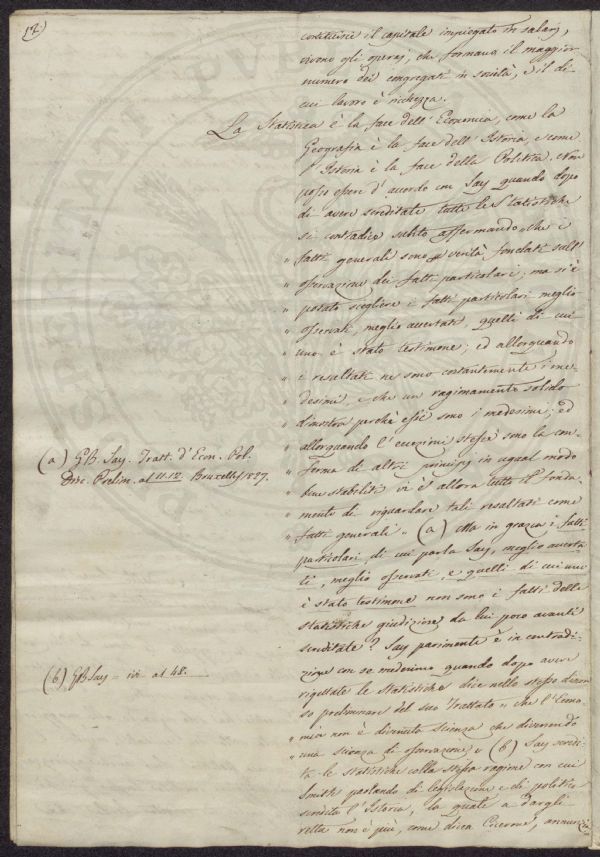 12.)
costituisce il capitale impiegato in salarj,
vivono gli operaj, che formano il maggior
numero dei congregati in società, e il di
cui lavoro è richezza.
La Statistica è la face dell'Economia, come la
Geografia è la face dell'Istoria, e come
l'Istoria è la face della Politica. Non
posso essere d'accordo con Say quando dopo
di avere screditate tutte le Statistiche
si contradice subito affermando che i
" fatti generali sono verità fondati sull'
" osservazione dei fatti particolari; ma si è
" potuto scegliere i fatti particolari meglio
" osservati, meglio accertati, quelli di cui
" uno è stato testimone; ed allorquando
" i resultati ne sono costantemente i me-
" desimi, e che un ragionamento solido
" dimostra perchè essi sono i medesimi; ed
" allorquando l'eccezioni stesse sono la con-
" ferma di altri principj in ugual modo
" ben stabiliti vi è allora tutto il fonda-
" mento di riguardare tali resultati come
" fatti generali " (a) Ma in grazia i fatti
particolari, di cui parla Say, meglio accerta-
ti, meglio osservati, e quelli di cui uno
è stato testimone non sono i fatti delle
statistiche giudiziose da lui poco avanti
screditate? Say parimente è in contradi-
zione con se medesimo quando dopo avere
rigettate le statistiche dice nello stesso discor-
so preliminare del suo Trattato " che l'Econo-
" mia non è divenuta scienza che divenendo
" una scienza di osservazione " (b) Say scredi-
ta le statistiche colla stessa ragione con cui
Smith parlando di legislazione e di politica
scredita l'Istoria, la quale a dargli
retta non è più, come dicea Cicerone,
(a) GB. Say. Tratt. d'Econ. Pol.
Disc. Prelim. al 11-12. Bruxelles 1827.
(b) GB Say = ivi al 48.